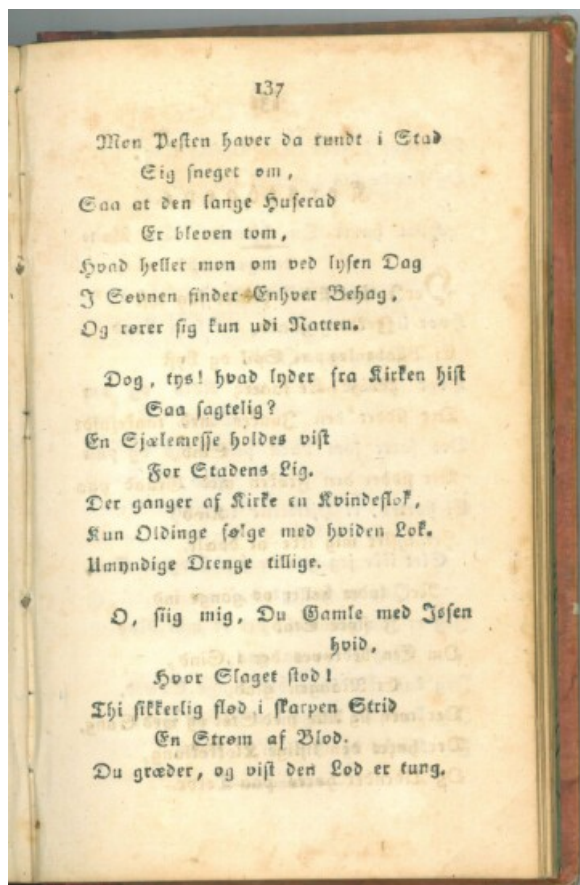 137
Mon Pesten haver da rundt i Stad
Sig sneget om,
Saa at den lange Huserad
Er bleven tom,
Hvad heller mon om ved lysen Dag
I Søvnen finder Enhver Behag,
Og rører sig kun udi Natten.
Dog, tys! hvad lyder fra Kirken hist
Saa sagtelig?
En Sjælemesse holdes vist
For Stadens Lig.
Der ganger af Kirke en Kvindeflok,
Kun Oldinge følge med hviden Lok.
Umyndige Drenge tillige.
O, siig mig, Du Gamle med Issen
hvid,
Hvor Slaget stod!
Thi sikkerlig flød i skarpen Strid
En Strøm af Blod.
Du græder, og vist den Lod er tung.